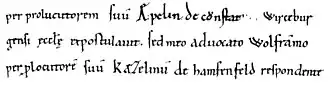 per prolucutorem suū Apelin de cōnstat . . wircebur
gensi eccl̄e repostulauit. sed meo aduocato wolframo
per plocutorē suū Kazelinū de hamsenfeld respondente